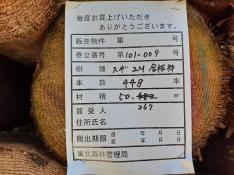 毎度お買上げいただき
ありがとうございます。
販売物件 第 号
巻立番号 第101-009号
樹種 スギ 2M
本数 448本
材積 50.
267
買受人
住所氏名
搬出期限 自 年 月 日
至 年 月 日
東北森林管理局